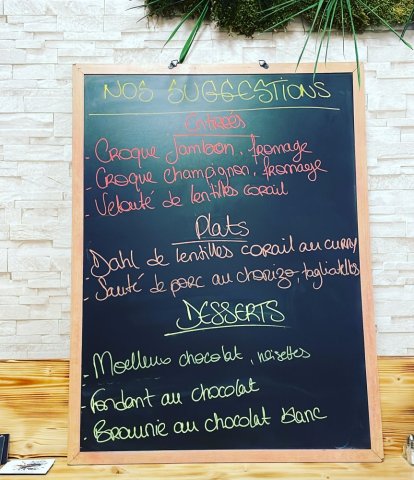 NOS SUGGESTIONS
Entrées
- Croque Jambon, fromage
- Croque champignon, fromage
- Velouté de lentilles corail
Plats
- Dahl de lentilles corail au curry
- Sauté de porc au chorizo, tagliatelles
DESSERTS
- Moelleux chocolat, noisettes
- Fondant au chocolat
- Brownie au chocolat blanc